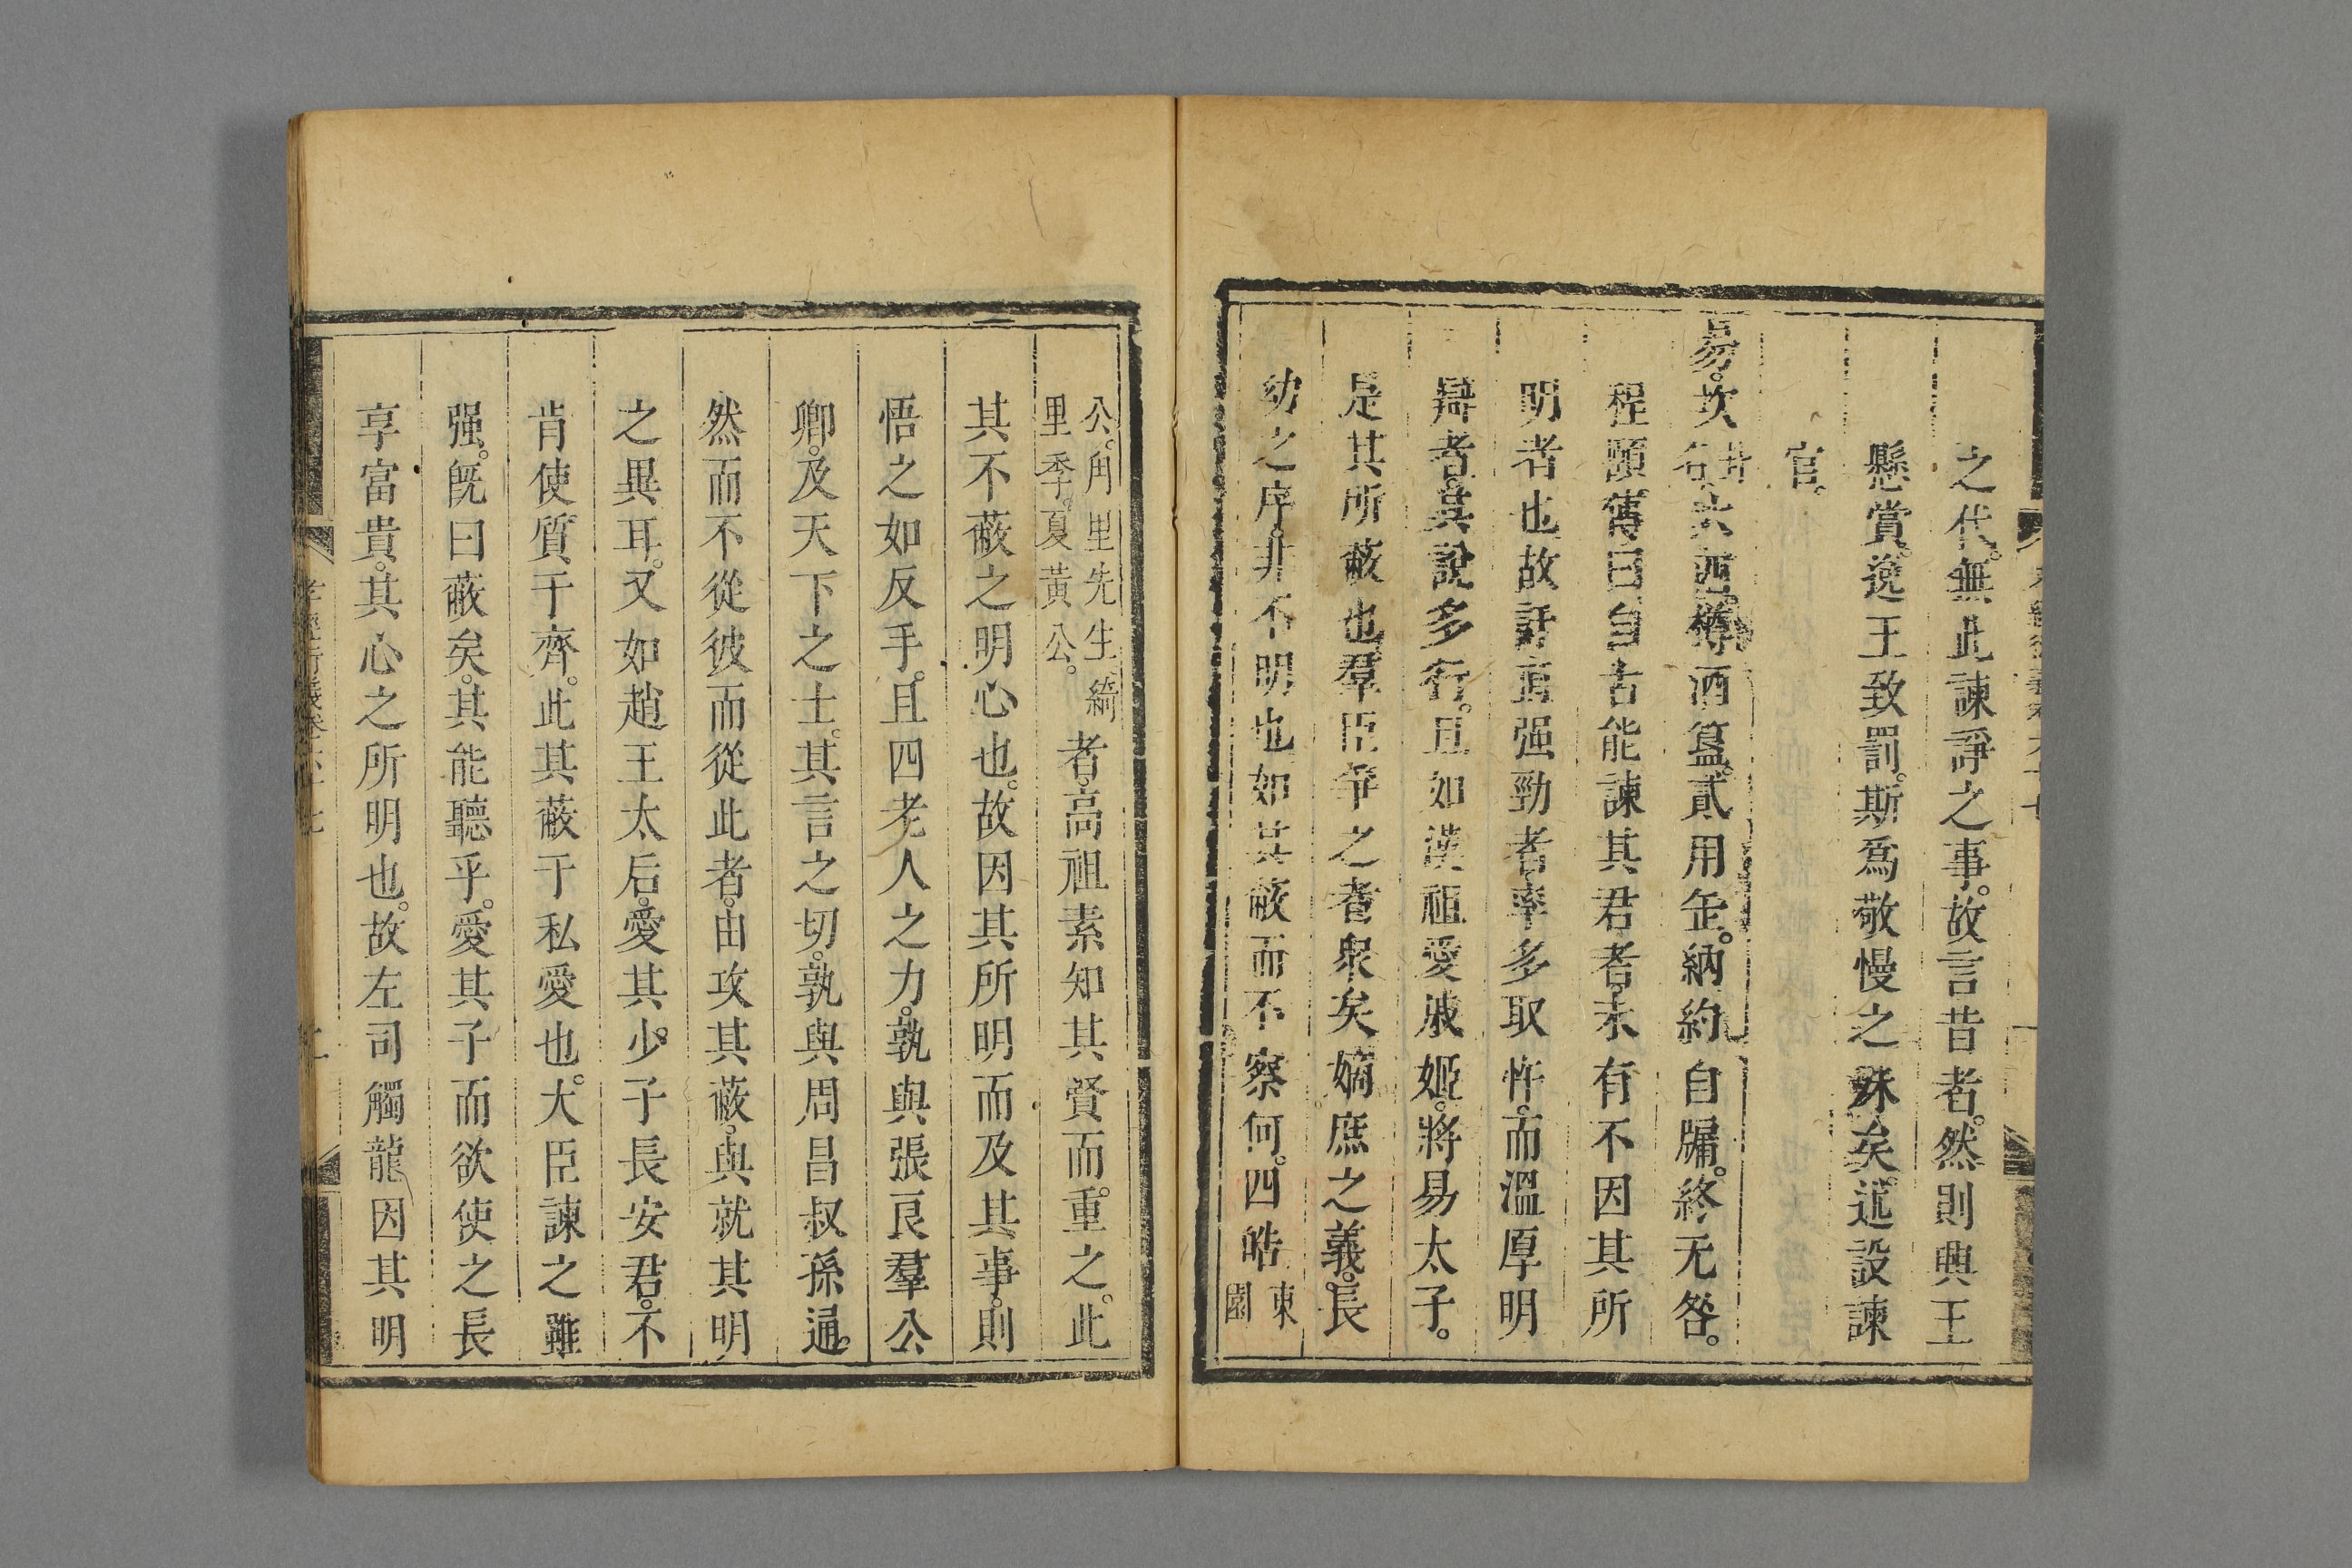 之代。無此諫諍之事。故言昔者。然則興王
懸賞。逸王致罰。斯爲敬慢之殊矣。述設諫
官。
易。坎卦名。六四。樽酒簋。貳用缶。納約自牖。終无咎。
程頤傳曰自古能諫其君者。未有不因其所
明者也故訐直强勁者。率多取忤。而溫厚明
辯者。其說多行。且如漢祖愛戚姬。將易太子。
是其所蔽也。羣臣爭之者衆矣嫡庶之義。長
幼之序。非不明也如其蔽而不察何。四皓東園
公。角里先生。綺里季。夏黃公。者。高祖素知其賢而。重之。此
其不蔽之明心也。故因其所明而及其事。則
悟之如反手。且四老人之力。孰與張良羣公
卿。及天下之士。其言之切。孰與周昌叔孫通。
然而不從彼而從此者。由攻其蔽。與就其明
之異耳。又如趙王太后。愛其少子長安君。不
肯使質于齊。此其蔽于私愛也。大臣諫之雖
强。旣曰蔽矣。其能聽乎。愛其子而欲使之長
享富貴。其心之所明也。故左司觸龍因其明
孝經衍義卷六十七